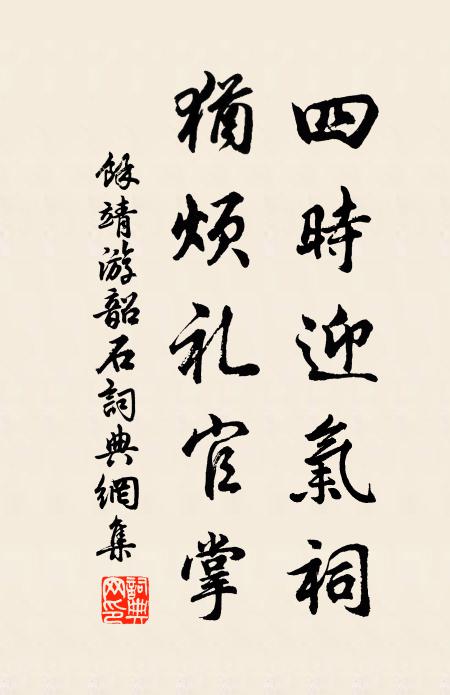 四時迎氣祠
猶煩礼官掌
餘靖游韶石詞典網集
詞典網印